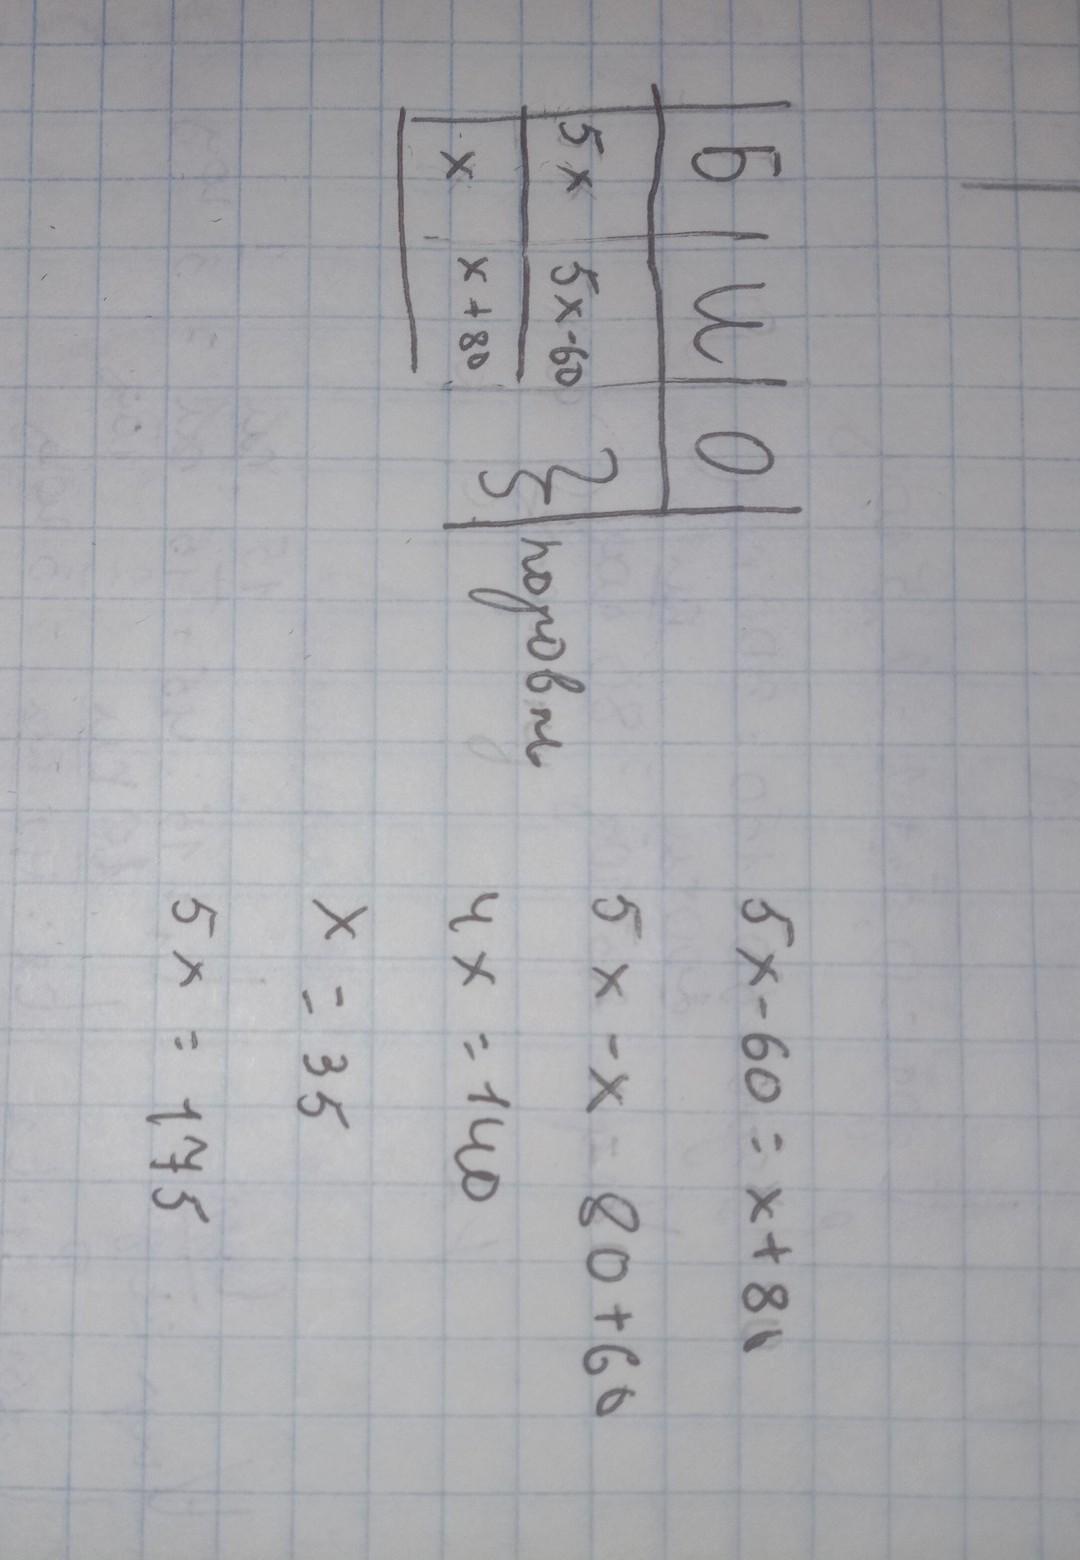 Б И О
5x 5x-60 } поровну
x x+80
5x-60=x+80
5x-x=80+60
4x=140
x=35
5x=175